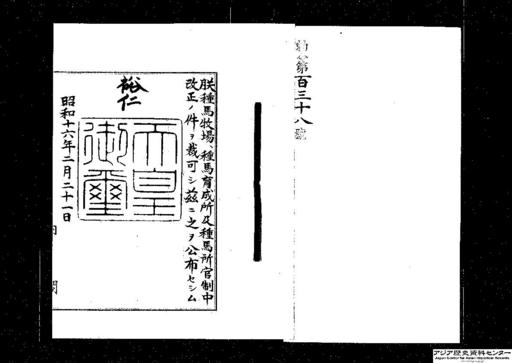 勅令第百三十八號
朕種馬牧場、種馬育成所及種馬所官制中
改正ノ件ヲ裁可シ茲ニ之ヲ公布セシム
裕仁
天皇御璽
昭和十六年二月二十一日
アジア歴史資料センター
Japan Center for Asian Historical Records